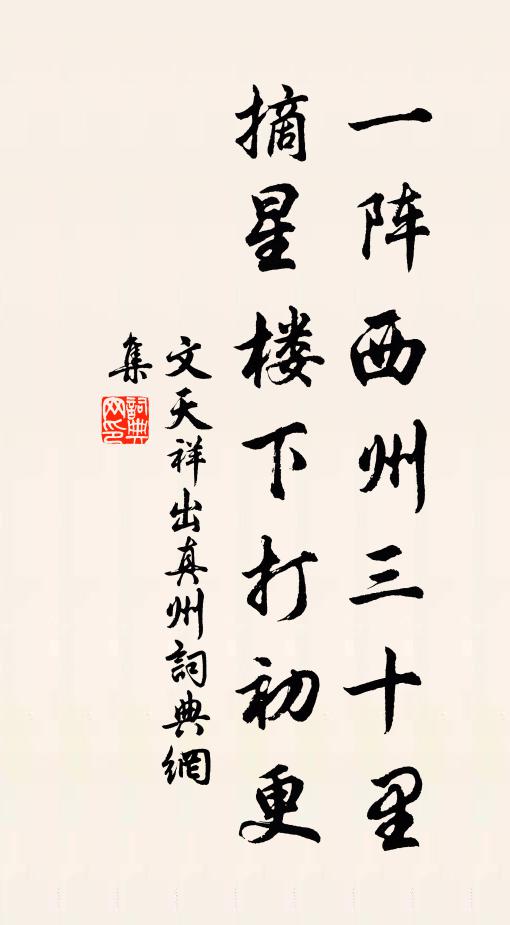 一阵西州三十里
摘星楼下打初更
文天祥出真州詞典網
集
詞典
网印